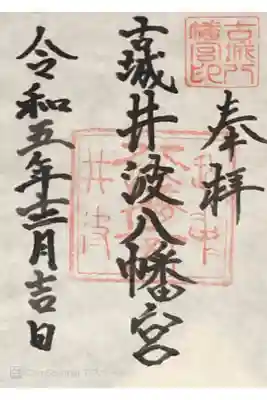 奉拝
古城井波八幡宮
令和五年十二月吉日
井波